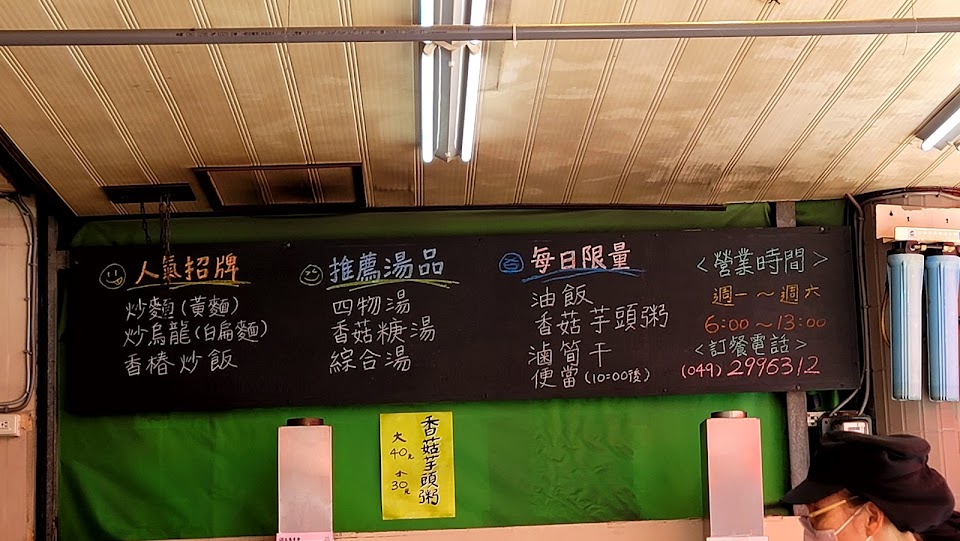 人氣招牌
炒麵(黃麵)
炒烏龍(白扁麵)
香椿炒飯
推薦湯品
四物湯
香菇糖湯
綜合湯
每日限量
油飯
香菇芋頭粥
滷筒干
便當(10:00後)
<營業時間>
週一～週六
6:00～13:00
<訂餐電話>
(049)2996312
香菇芋頭粥
大40元
小30元